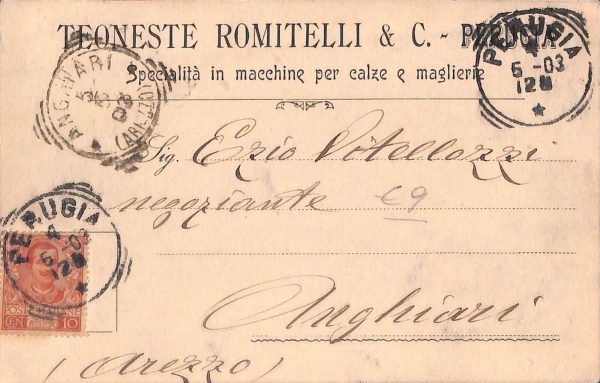 TEONESTE ROMITELLI & C. - PERUGIA
Specialità in macchine per calze e maglierie
ANGHIARI
(AREZZO)
5
5
03
PERUGIA
4
5-03
12M
Sig. Ezio Vitellozzi
negoziante
€9
PERUGIA
4
5-03
12M
POSTE ITALIANE
CENT. 10
Anghiari
(Arezzo)